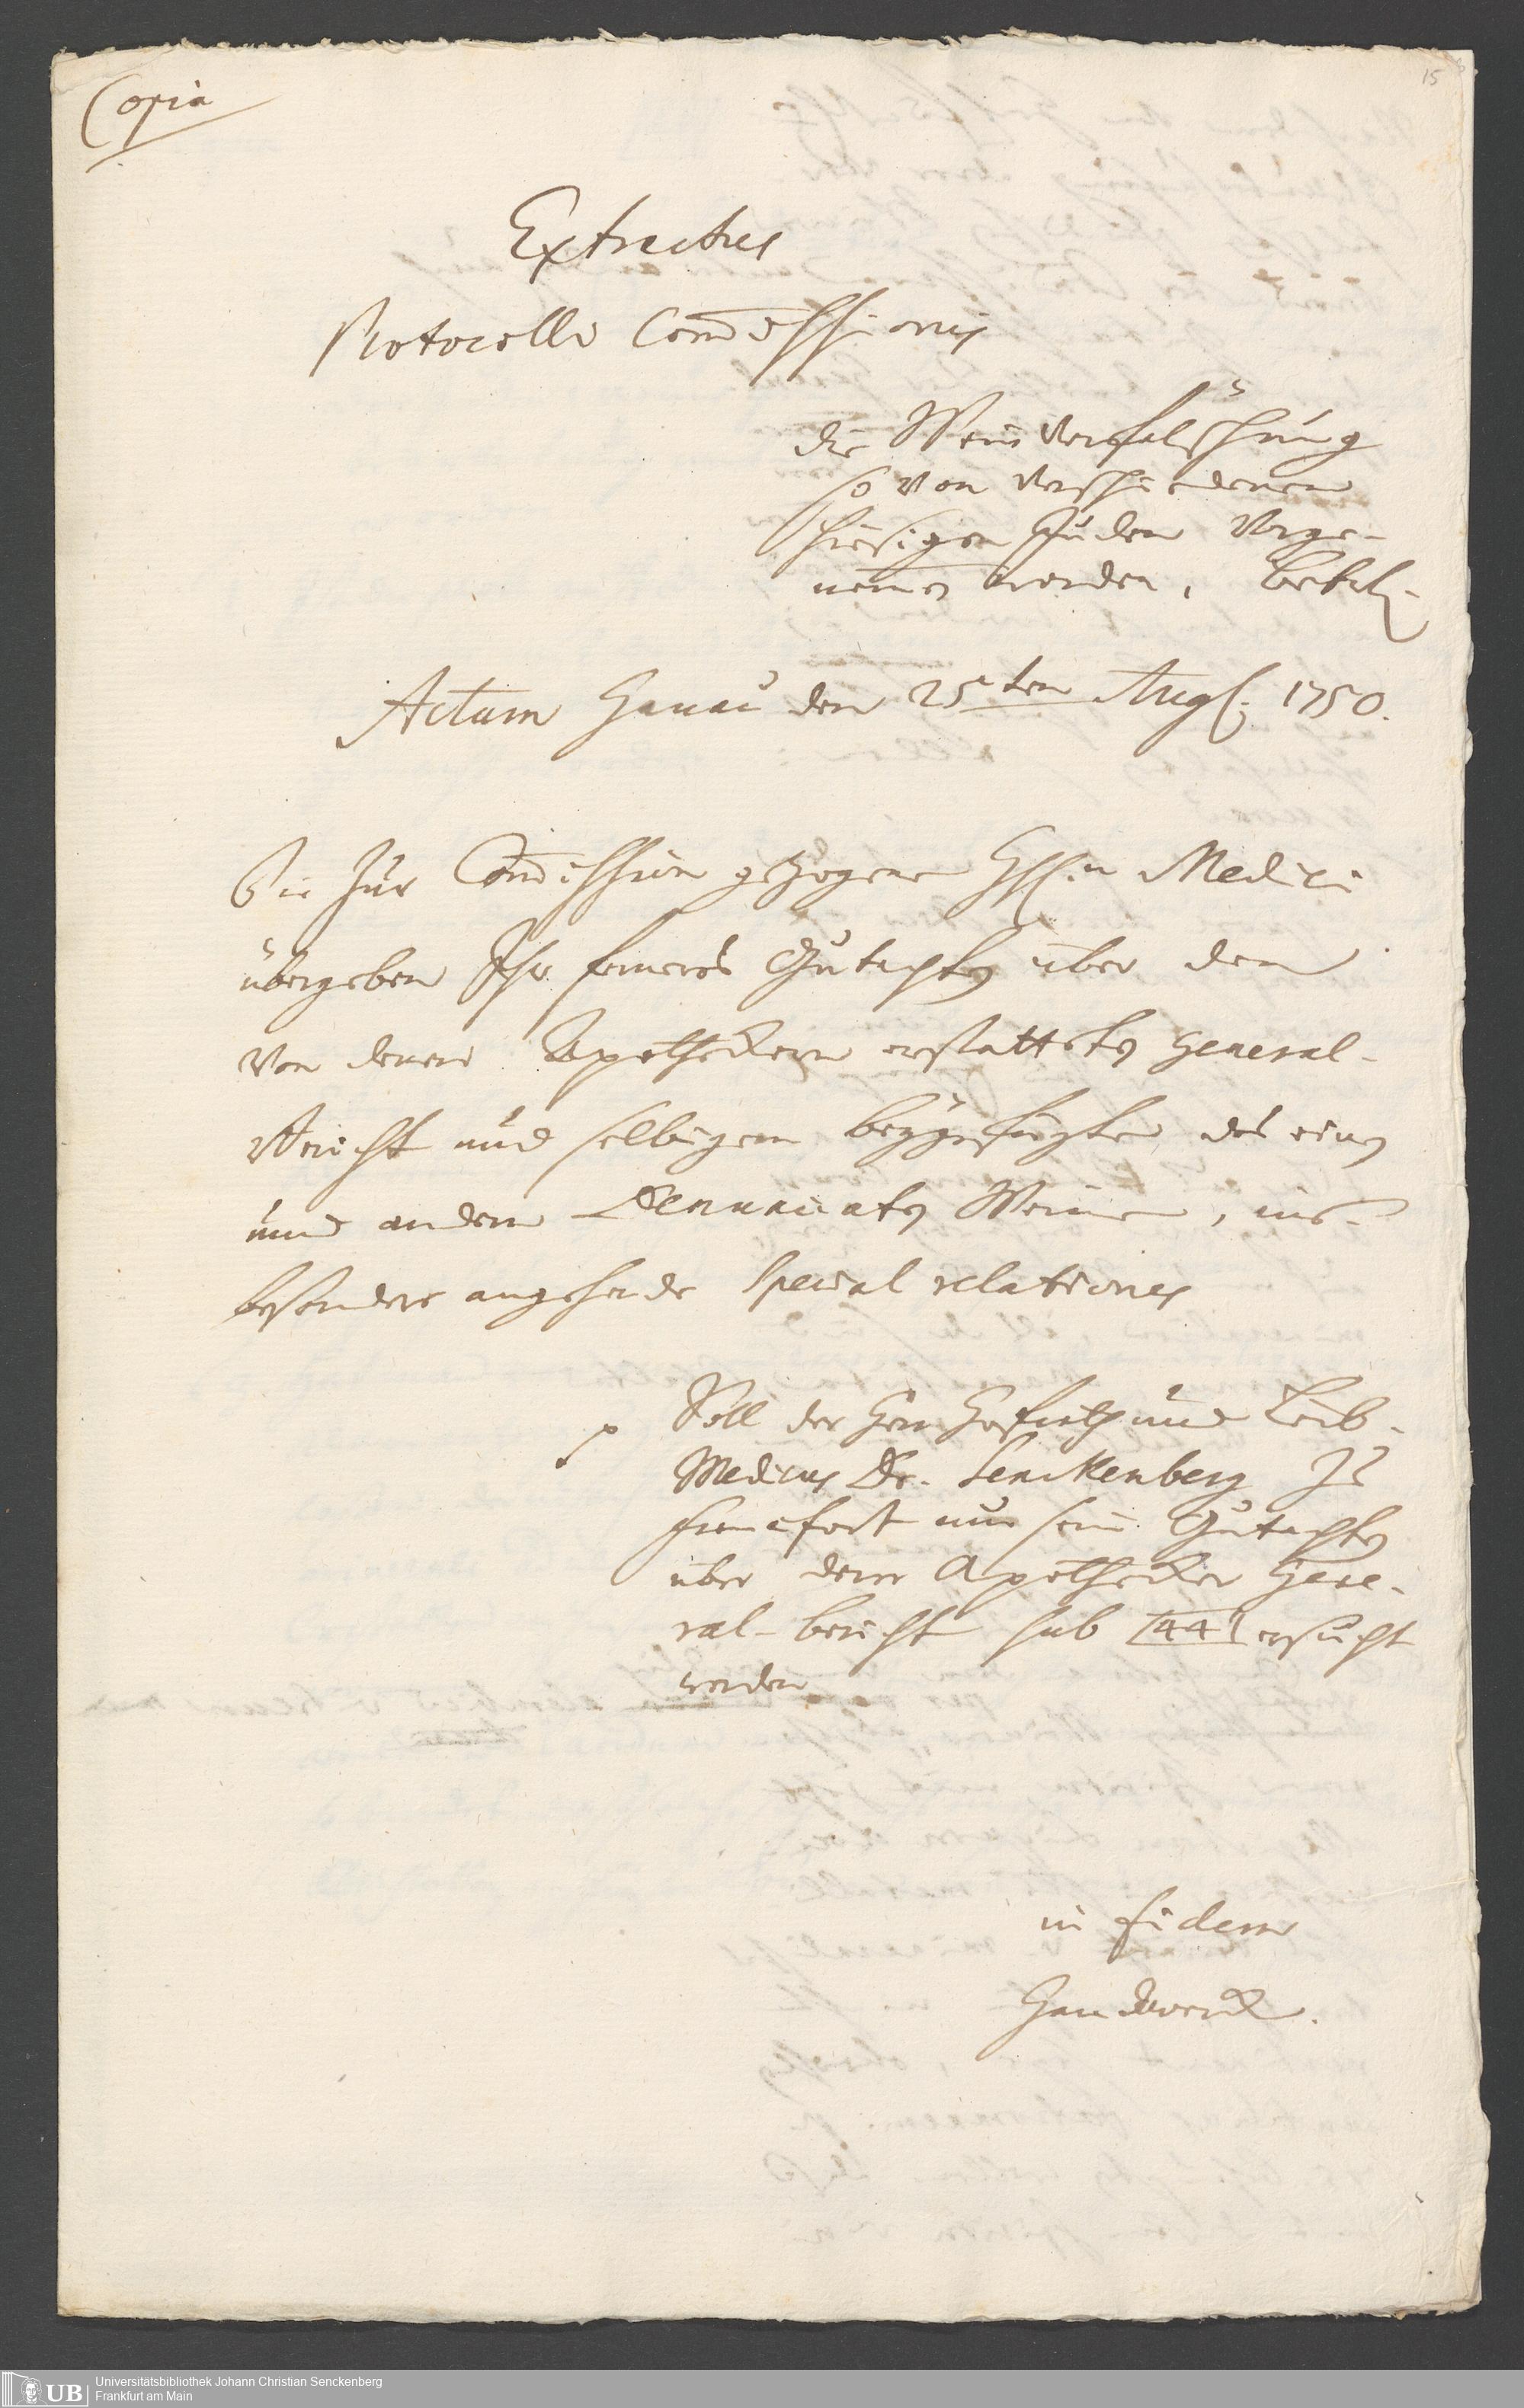 Copia
15
Extractus
Protocolli Com̄issionis
die Wein Verfälschung
so von verschiedenen
hiesigen Juden vorge-
nom̄en worden, betrf.
Actum Hanau den 25ten Aug. 1750.
Die zur Com̄ission gezogene HH.n Medici
übergeben Ihr ferneres Gutachten über den
von denen Apotheckern erstatteten General-
Bericht und selbigem beygefügte, des einen
und andern Denunciaten Weine, ins-
besondere angehende Special relationes
Soll der Herr Hofrath und Leib-
Medicus Dr. Senckenberg zu
Franckfort um sein Gutachten
über derer Apothecker Gene-
ral-bericht sub [44] ersucht
werden
in fidem
Handwerck.
UB
Universitätsbibliothek Johann Christian Senckenberg
Frankfurt am Main